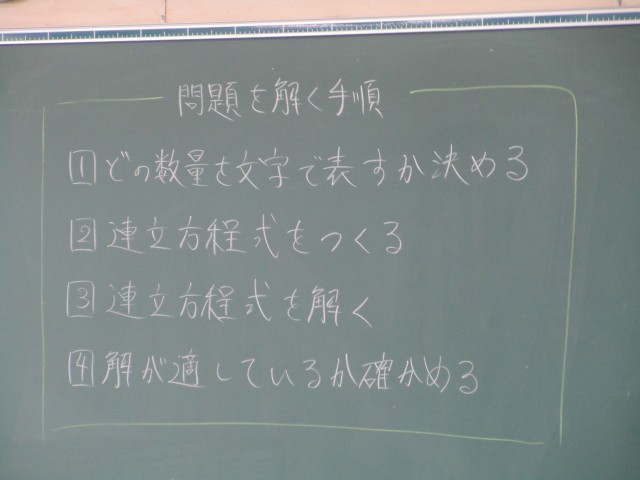 問題を解く手順
1 どの数量を文字で表すか決める
2 連立方程式をつくる
3 連立方程式を解く
4 解が適しているか確かめる